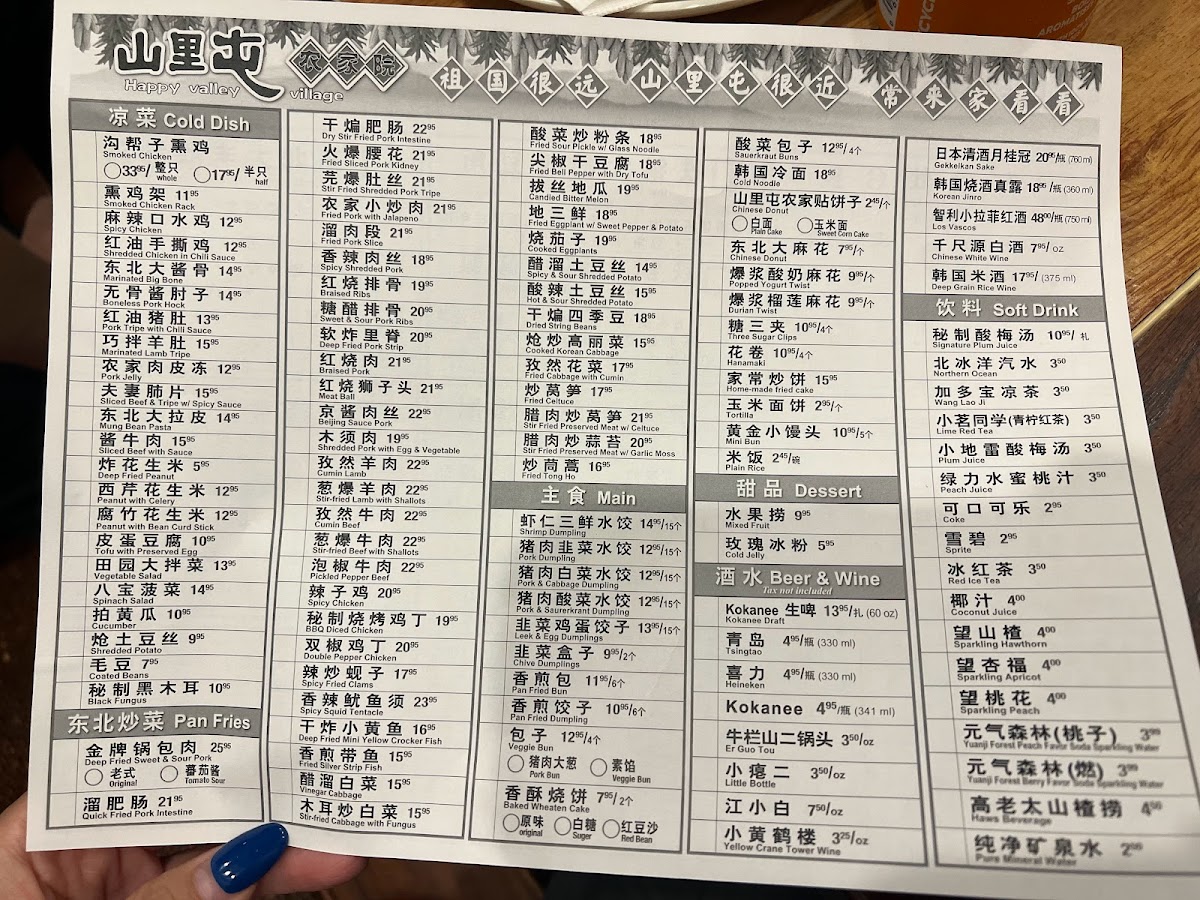 山里屯
Happy valley
农家院
village
祖国很远 山里屯很近 常来家看看
凉菜 Cold Dish
沟帮子熏鸡
Smoked Chicken
33.95/整只 whole 17.95/半只 half
熏鸡架 11.95
Smoked Chicken Rack
麻辣口水鸡 12.95
Spicy Chicken
红油手撕鸡 12.95
Shredded Chicken in Chili Sauce
东北大酱骨 14.95
Marinated Big Bone
无骨酱肘子 14.95
Boneless Pork Hock
红油猪肚 13.95
Pork Tripe with Chili Sauce
巧拌羊肚 15.95
Marinated Lamb Tripe
农家肉皮冻 12.95
Pork Jelly
夫妻肺片 15.95
Sliced Beef & Tripe w/ Spicy Sauce
东北大拉皮 14.95
Mung Bean Pasta
酱牛肉 15.95
Sliced Beef with Sauce
炸花生米 5.95
Deep Fried Peanut
西芹花生米 12.95
Peanut with Celery
腐竹花生米 12.95
Peanut with Bean Curd Stick
皮蛋豆腐 10.95
Tofu with Preserved Egg
田园大拌菜 13.95
Vegetable Salad
八宝菠菜 14.95
Spinach Salad
拍黄瓜 10.95
Cucumber
炝土豆丝 9.95
Shredded Potato
毛豆 7.95
Coated Beans
秘制黑木耳 10.95
Black Fungus
东北炒菜 Pan Fries
金牌锅包肉 25.95
Deep Fried Sweet & Sour Pork
老式 Original 蕃茄酱 Tomato Sour
溜肥肠 21.95
Quick Fried Pork Intestine
干煸肥肠 22.95
Dry Stir Fried Pork Intestine
火爆腰花 21.95
Fried Sliced Pork Kidney
芫爆肚丝 21.95
Stir Fried Shredded Pork Tripe
农家小炒肉 21.95
Fried Pork with Jalapeno
溜肉段 21.95
Fried Pork Slice
香辣肉丝 18.95
Spicy Shredded Pork
红烧排骨 19.95
Braised Ribs
糖醋排骨 20.95
Sweet & Sour Pork Ribs
软炸里脊 20.95
Deep Fried Pork Strip
红烧肉 21.95
Braised Pork
红烧狮子头 21.95
Meat Ball
京酱肉丝 22.95
Beijing Sauce Pork
木须肉 19.95
Shredded Pork with Egg & Vegetable
孜然羊肉 22.95
Cumin Lamb
葱爆羊肉 22.95
Stir-fried Lamb with Shallots
孜然牛肉 22.95
Cumin Beef
葱爆牛肉 22.95
Stir-fried Beef with Shallots
泡椒牛肉 22.95
Pickled Pepper Beef
辣子鸡 20.95
Spicy Chicken
秘制烧烤鸡丁 19.95
BBQ Diced Chicken
双椒鸡丁 20.95
Double Pepper Chicken
辣炒蚬子 17.95
Spicy Fried Clams
香辣鱿鱼须 23.95
Spicy Squid Tentacle
干炸小黄鱼 16.95
Deep Fried Mini Yellow Crocker Fish
香煎带鱼 15.95
Fried Silver Strip Fish
醋溜白菜 15.95
Vinegar Cabbage
木耳炒白菜 15.95
Stir-fried Cabbage with Fungus
酸菜炒粉条 18.95
Fried Sour Pickle w/ Glass Noodle
尖椒干豆腐 18.95
Fried Bell Pepper with Dry Tofu
拔丝地瓜 19.95
Candied Bitter Melon
地三鲜 18.95
Fried Eggplant w/ Sweet Pepper & Potato
烧茄子 19.95
Cooked Eggplants
醋溜土豆丝 14.95
Spicy & Sour Shredded Potato
酸辣土豆丝 15.95
Hot & Sour Shredded Potato
干煸四季豆 18.95
Dried String Beans
炝炒高丽菜 15.95
Cooked Korean Cabbage
孜然花菜 17.95
Fried Cabbage with Cumin
炒莴笋 17.95
Fried Celtuce
腊肉炒莴笋 21.95
Stir Fried Preserved Meat w/ Celtuce
腊肉炒蒜苔 20.95
Stir Fried Preserved Meat w/ Garlic Moss
炒茼蒿 16.95
Fried Tong Ho
主食 Main
虾仁三鲜水饺 14.95/15个
Shrimp Dumpling
猪肉韭菜水饺 12.95/15个
Pork Dumpling
猪肉白菜水饺 12.95/15个
Pork & Cabbage Dumpling
猪肉酸菜水饺 12.95/15个
Pork & Saurerkrant Dumpling
韭菜鸡蛋饺子 13.95/15个
Leek & Egg Dumplings
韭菜盒子 9.95/2个
Chive Dumplings
香煎包 11.95/6个
Pan Fried Bun
香煎饺子 10.95/6个
Pan Fried Dumpling
包子 12.95/4个
Veggie Bun
猪肉大葱 Pork Bun 素馅 Veggie Bun
香酥烧饼 7.95/2个
Baked Wheaten Cake
原味 original 白糖 Suger 红豆沙 Red Bean
酸菜包子 12.95/4个
Sauerkraut Buns
韩国冷面 18.95
Cold Noodle
山里屯农家贴饼子 2.45/个
Chinese Donut
白面 Plain Cake 玉米面 Sweet Corn Cake
东北大麻花 7.95/个
Chinese Donut
爆浆酸奶麻花 9.95/个
Popped Yogurt Twist
爆浆榴莲麻花 9.95/个
Durian Twist
糖三夹 10.95/4个
Three Sugar Clips
花卷 10.95/4个
Hanamaki
家常炒饼 15.95
Home-made fried cake
玉米面饼 2.95/个
Tortilla
黄金小馒头 10.95/5个
Mini Bun
米饭 2.45/碗
Plain Rice
甜品 Dessert
水果捞 9.95
Mixed Fruit
玫瑰冰粉 5.95
Cold Jelly
酒水 Beer & Wine
Tax not included
Kokanee 生啤 13.95/扎 (60 oz)
Kokanee Draft
青岛 4.95/瓶 (330 ml)
Tsingtao
喜力 4.95/瓶 (330 ml)
Heineken
Kokanee 4.95/瓶 (341 ml)
牛栏山二锅头 3.50/oz
Er Guo Tou
小瘪二 3.50/oz
Little Bottle
江小白 7.50/oz
小黄鹤楼 3.25/oz
Yellow Crane Tower Wine
日本清酒月桂冠 20.95/瓶 (760 ml)
Gekkeikan Sake
韩国烧酒真露 18.95/瓶 (360 ml)
Korean Jinro
智利小拉菲红酒 48.00/瓶 (750 ml)
Los Vascos
千尺源白酒 7.95/oz
Chinese White Wine
韩国米酒 17.95/(375 ml)
Deep Grain Rice Wine
饮料 Soft Drink
秘制酸梅汤 10.95/扎
Signature Plum Juice
北冰洋汽水 3.50
Northern Ocean
加多宝凉茶 3.50
Wang Lao Ji
小茗同学(青柠红茶) 3.50
Lime Red Tea
小地雷酸梅汤 3.50
Plum Juice
绿力水蜜桃汁 3.50
Peach Juice
可口可乐 2.95
Coke
雪碧 2.95
Sprite
冰红茶 3.50
Red Ice Tea
椰汁 4.00
Coconut Juice
望山楂 4.00
Sparkling Hawthorn
望杏福 4.00
Sparkling Apricot
望桃花 4.00
Sparkling Peach
元气森林(桃子) 3.99
Yuanji Forest Peach Favor Soda Sparkling Water
元气森林(燃) 3.99
Yuanji Forest Berry Favor Soda Sparkling Water
高老太山楂捞 4.50
Haws Beverage
纯净矿泉水 2.00
Pure Mineral Water